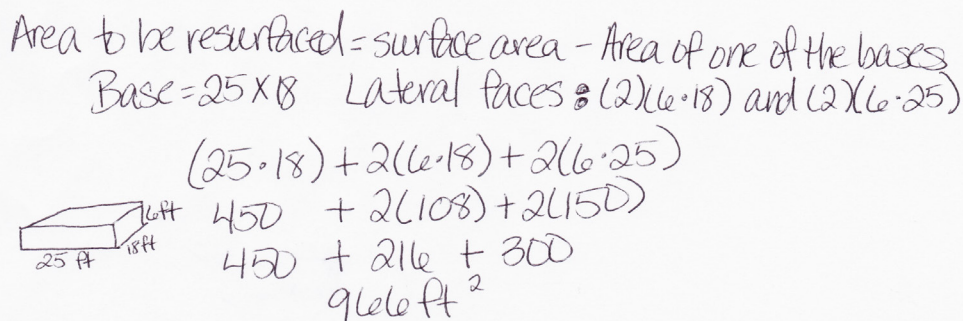 Area to be resurfaced = surface area - Area of one of the bases
Base = 25 X 18 Lateral faces : (2)(6·18) and (2)(6·25)
(25·18) + 2(6·18) + 2(6·25)
450 + 2(108) + 2(150)
450 + 216 + 300
966 ft²
6ft
18ft
25 ft